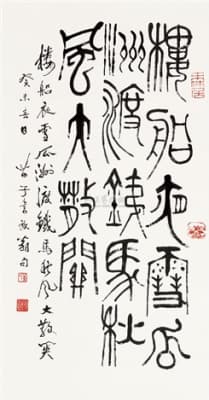 樓船夜雪瓜
洲渡鐵馬秋
風大散關
樓船夜雪瓜洲渡鐵馬秋风大散关
癸未 日 子書放翁句